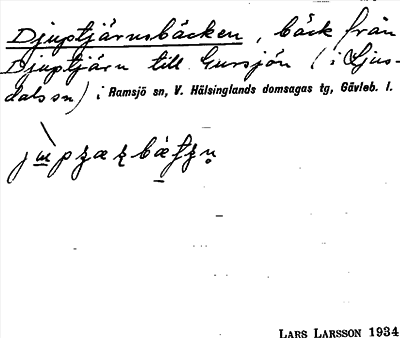 Djuptjärnsbäcken, bäck från
Djuptjärn till Gursjön (i Ljus-
dals sn) i Ramsjö sn, V. Hälsinglands domsagas tg, Gävleb. l.
LARS LARSSON 1934